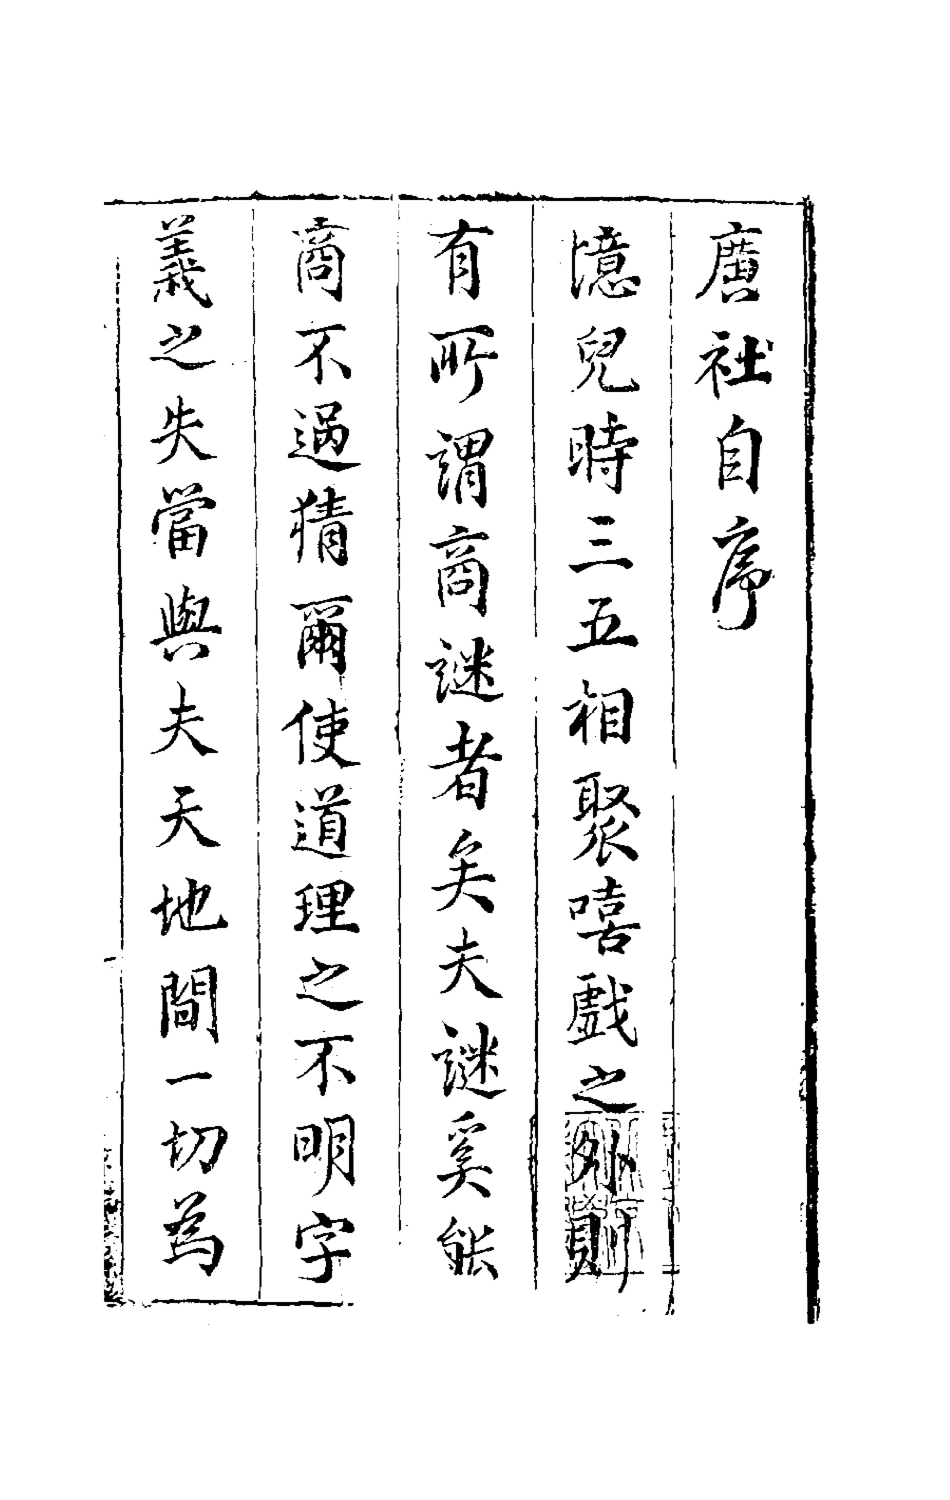 廣社自序
憶兒時三五相聚嘻戲之外則
有所謂商謎者矣夫謎奚能
商不過猜爾使道理之不明字
義之失當與夫天地間一切為